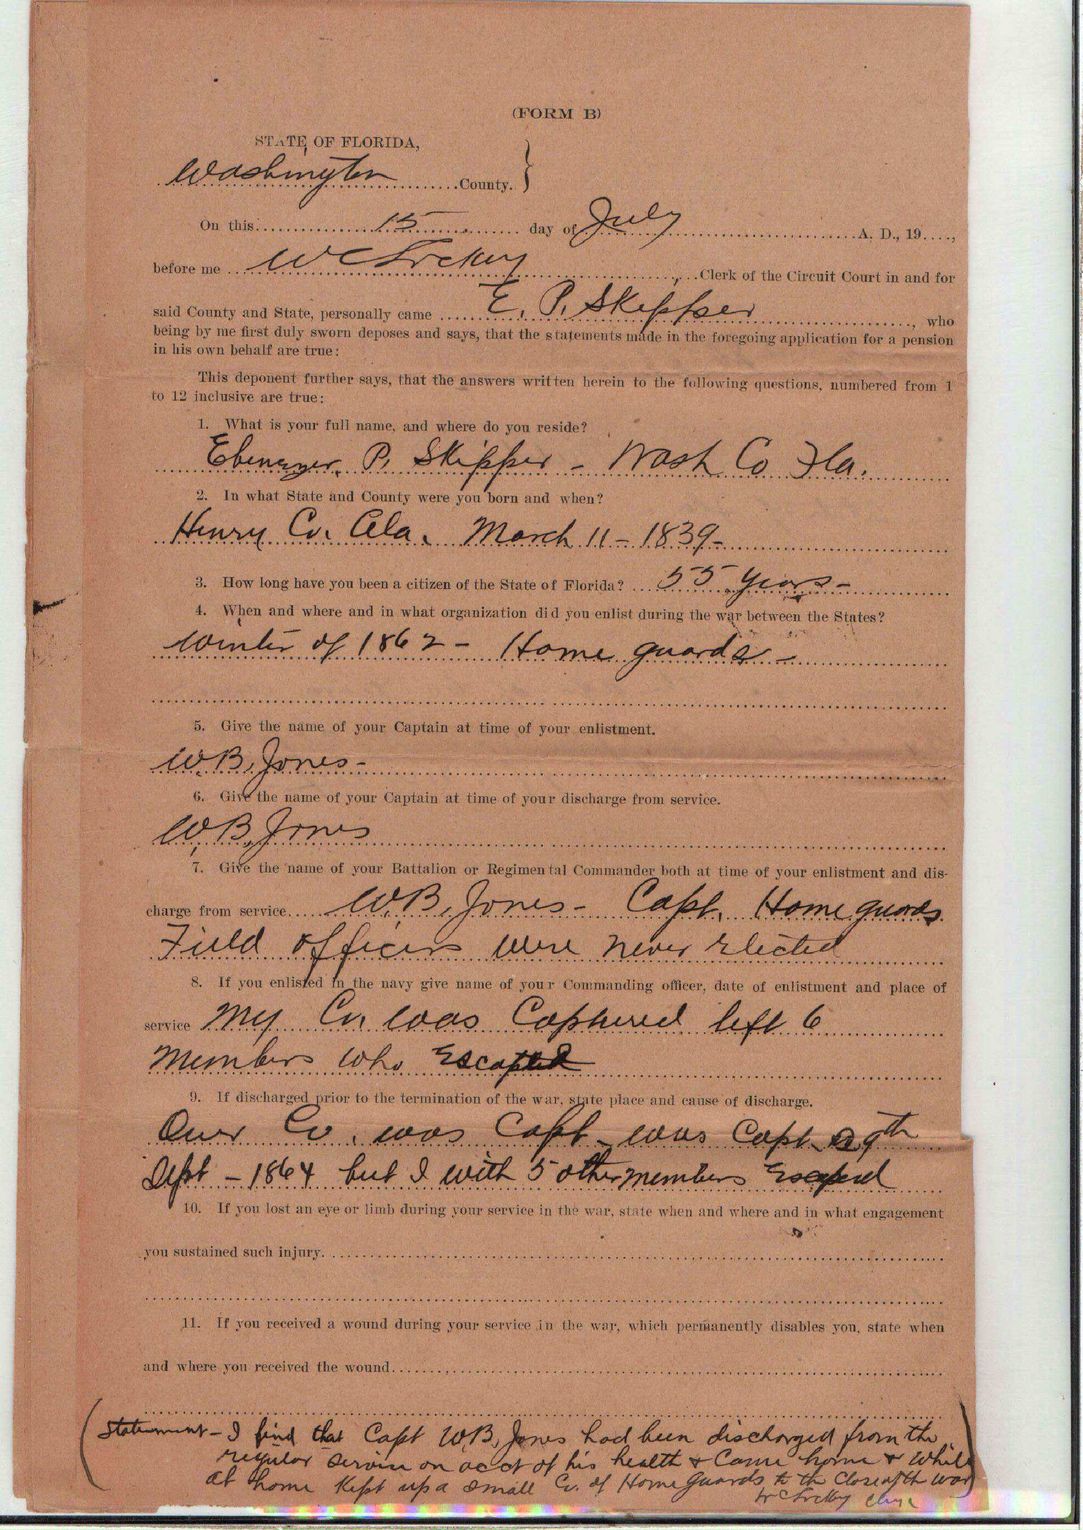 (FORM B)
STATE OF FLORIDA,
Washington County.
On this 15 day of July A. D., 19....,
before me W C Lockey, Clerk of the Circuit Court in and for
said County and State, personally came E. P. Skipper, who
being by me first duly sworn deposes and says, that the statements made in the foregoing application for a pension
in his own behalf are true:
This deponent further says, that the answers written herein to the following questions, numbered from 1
to 12 inclusive are true:
1. What is your full name, and where do you reside?
Ebenezer P. Skipper - Wash Co Fla.
2. In what State and County were you born and when?
Henry Co. Ala. March 11 - 1839 -
3. How long have you been a citizen of the State of Florida? 55 years -
4. When and where and in what organization did you enlist during the war between the States?
Winter of 1862 - Home guards -
5. Give the name of your Captain at time of your enlistment.
W.B. Jones -
6. Give the name of your Captain at time of your discharge from service.
W.B. Jones
7. Give the name of your Battalion or Regimental Commander both at time of your enlistment and dis-
charge from service W.B. Jones - Capt. Home guards
Field officers were never elected
8. If you enlisted in the navy give name of your Commanding officer, date of enlistment and place of
service My Co. was Captured left 6
Members who Escaped
9. If discharged prior to the termination of the war, state place and cause of discharge.
Ouer Co. was Capt - was Capt 29th
Sept - 1864 but I with 5 other members Escaped
10. If you lost an eye or limb during your service in the war, state when and where and in what engagement
you sustained such injury.
11. If you received a wound during your service in the war, which permanently disables you, state when
and where you received the wound
(Statement - I find that Capt W.B. Jones had been discharged from the
regular service on acct of his health & Came home & While
at home Kept up a small Co. of Home guards to the Close of the war)
W C Lockey